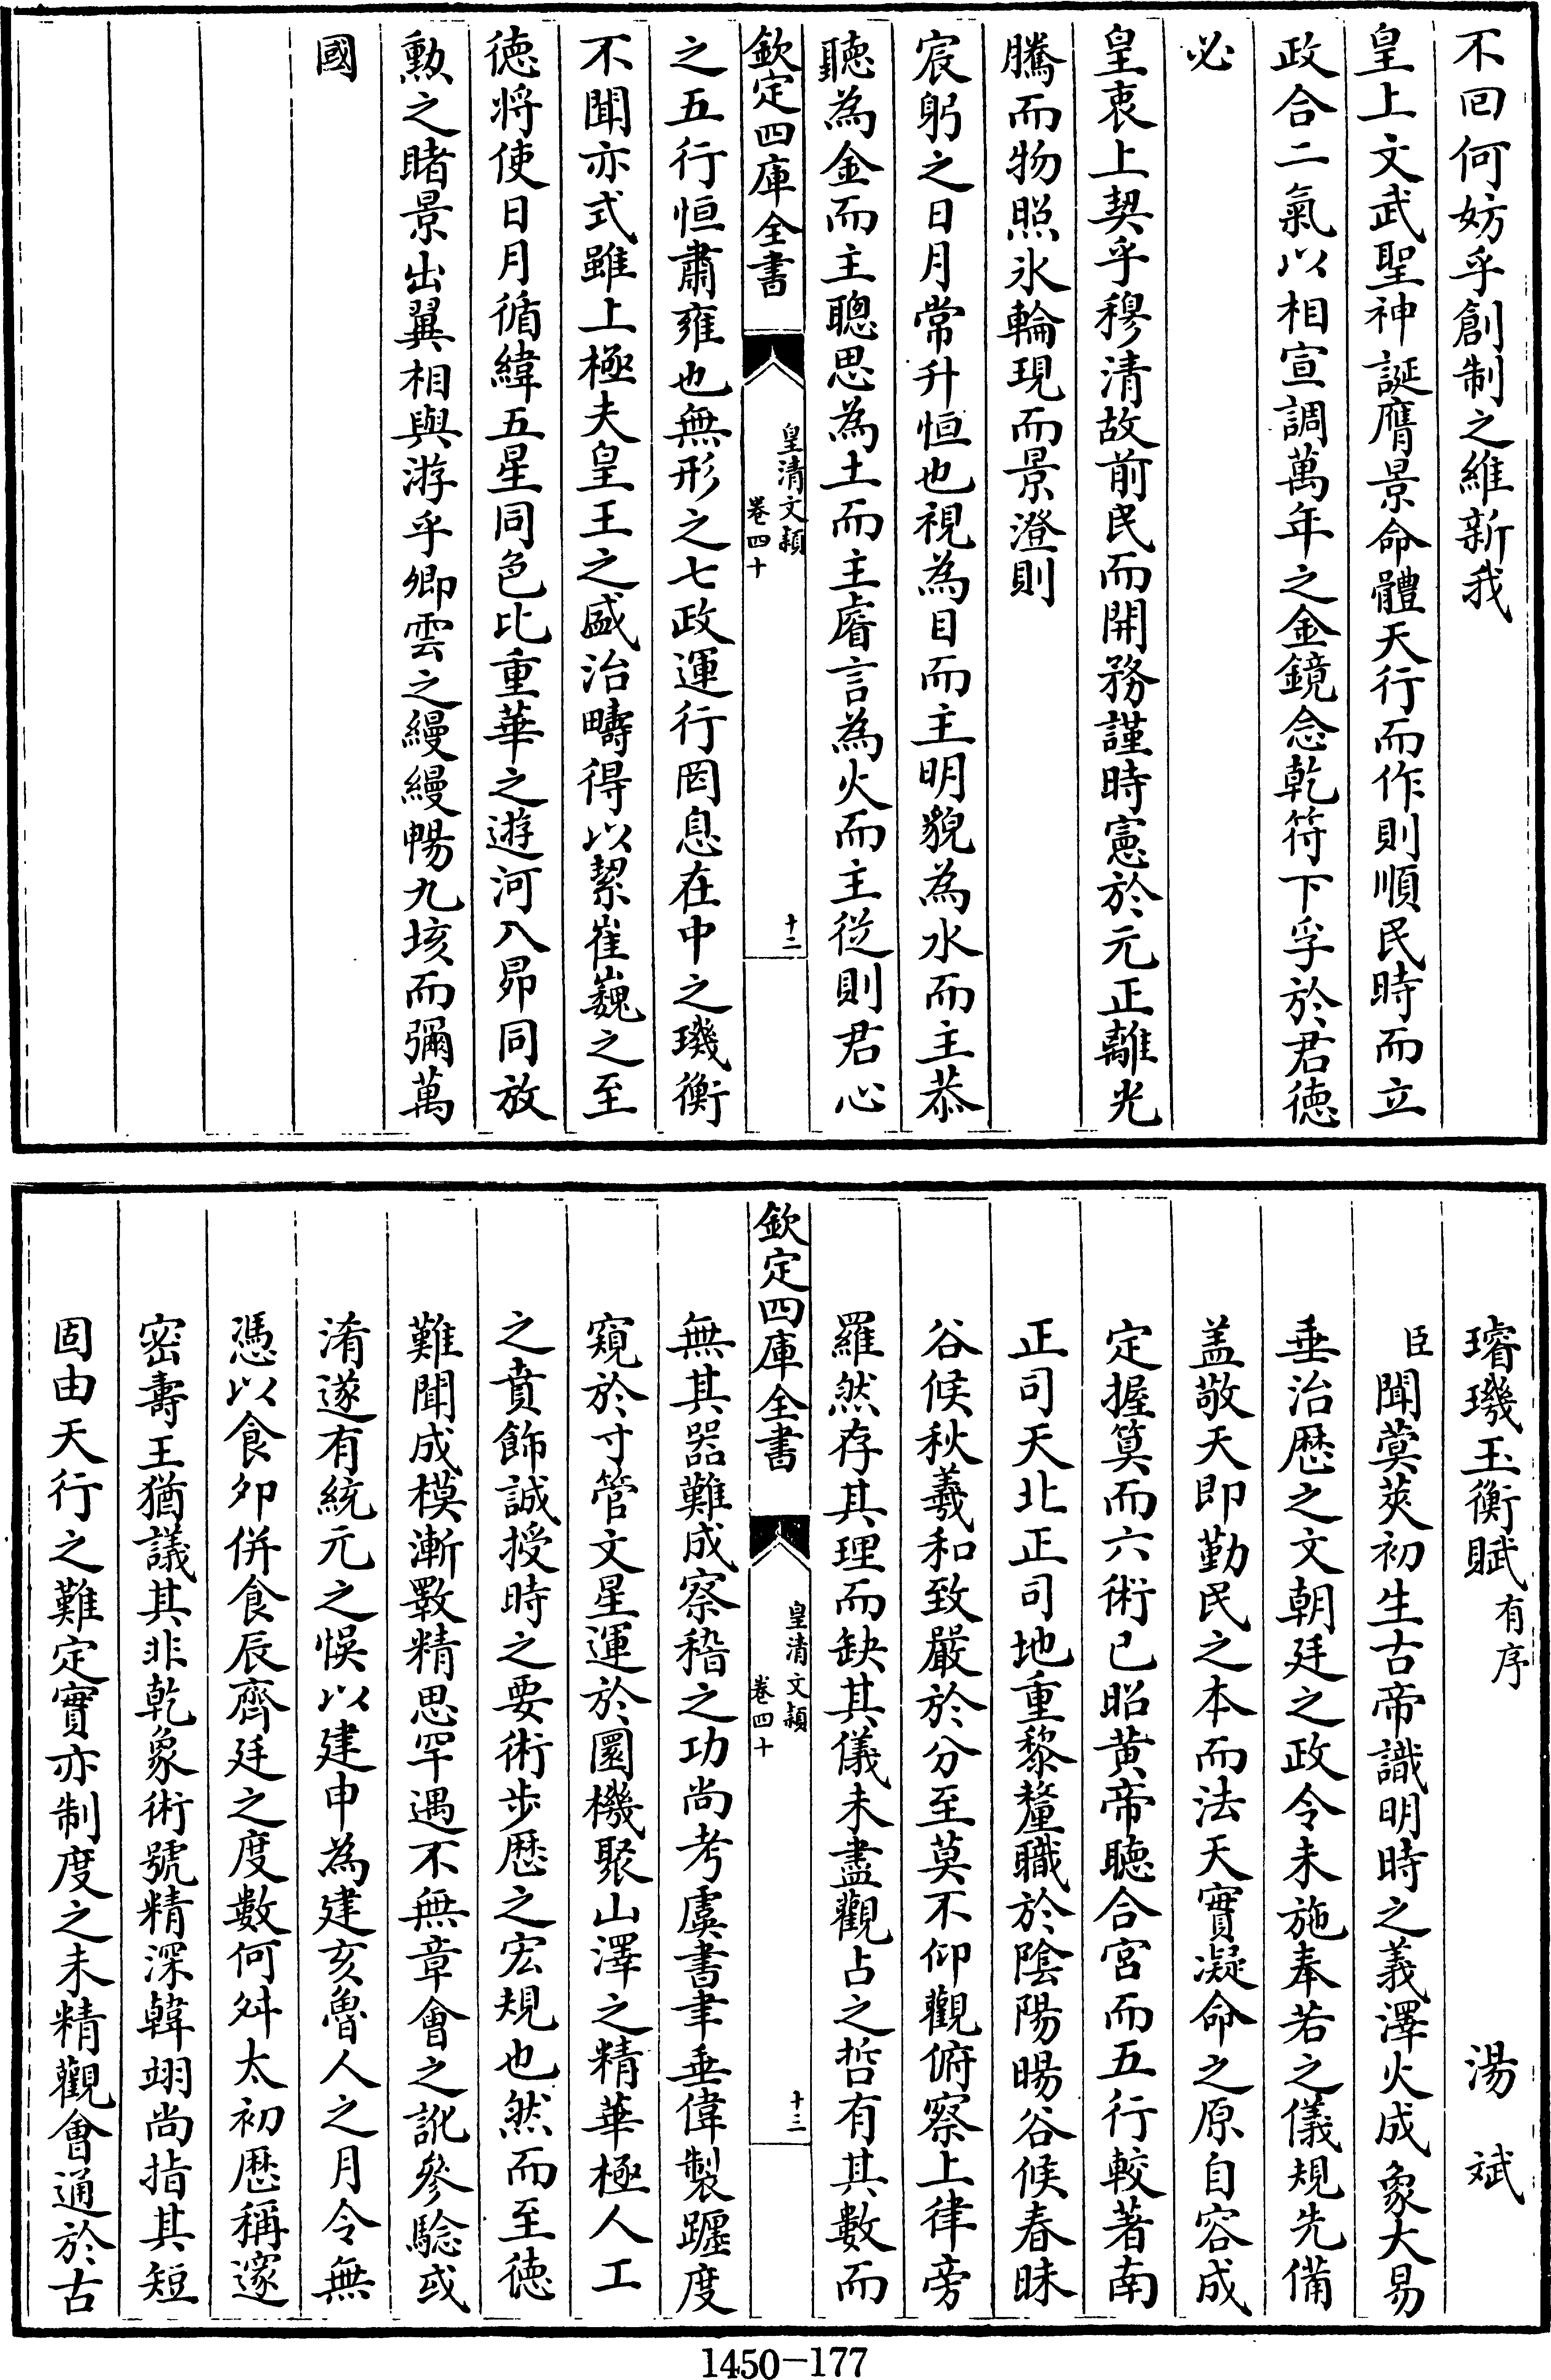 不回何妨乎創制之維新我
皇上文武聖神誕膺景命體天行而作則順民時而立
政合二氣以相宣調萬年之金鏡念乾符下孚於君德
必
皇衷上契乎穆清故前民而開務謹時憲於元正離光
騰而物照氷輪現而景澄則
宸躬之日月常升恒也視為目而主明貌為水而主恭
聽為金而主聰思為土而主睿言為火而主從則君心
欽定四庫全書
皇清文穎
卷四十
十二
之五行恒肅雍也無形之七政運行罔息在中之璣衡
不聞亦式雖上極夫皇王之盛治疇得以絜崔巍之至
徳將使日月循緯五星同色比重華之遊河入昴同放
勲之睹景出翼相與游乎卿雲之縵縵暢九垓而彌萬
國
璿璣玉衡賦有序
湯斌
臣聞蓂莢初生古帝識明時之義澤火成象大易
垂治歴之文朝廷之政令未施奉若之儀規先備
盖敬天即勤民之本而法天實凝命之原自容成
定握算而六術已昭黄帝聴合宮而五行較著南
正司天北正司地重黎釐職於陰陽暘谷候春昧
谷候秋羲和致嚴於分至莫不仰觀俯察上律旁
羅然存其理而缺其儀未盡觀占之哲有其數而
欽定四庫全書
皇清文穎
卷四十
十三
無其器難成察稽之功尚考虞書聿垂偉製躔度
窺於寸管文星運於圜機聚山澤之精華極人工
之賁飾誠授時之要術步歴之宏規也然而至徳
難聞成模漸斁精思罕遇不無章會之訛參驗或
淆遂有統元之悞以建申為建亥魯人之月令無
憑以食夘併食辰齊廷之度數何舛太初歴稱邃
密壽王猶議其非乾象術號精深韓翊尚指其短
固由天行之難定實亦制度之未精觀會通於古
1450-177